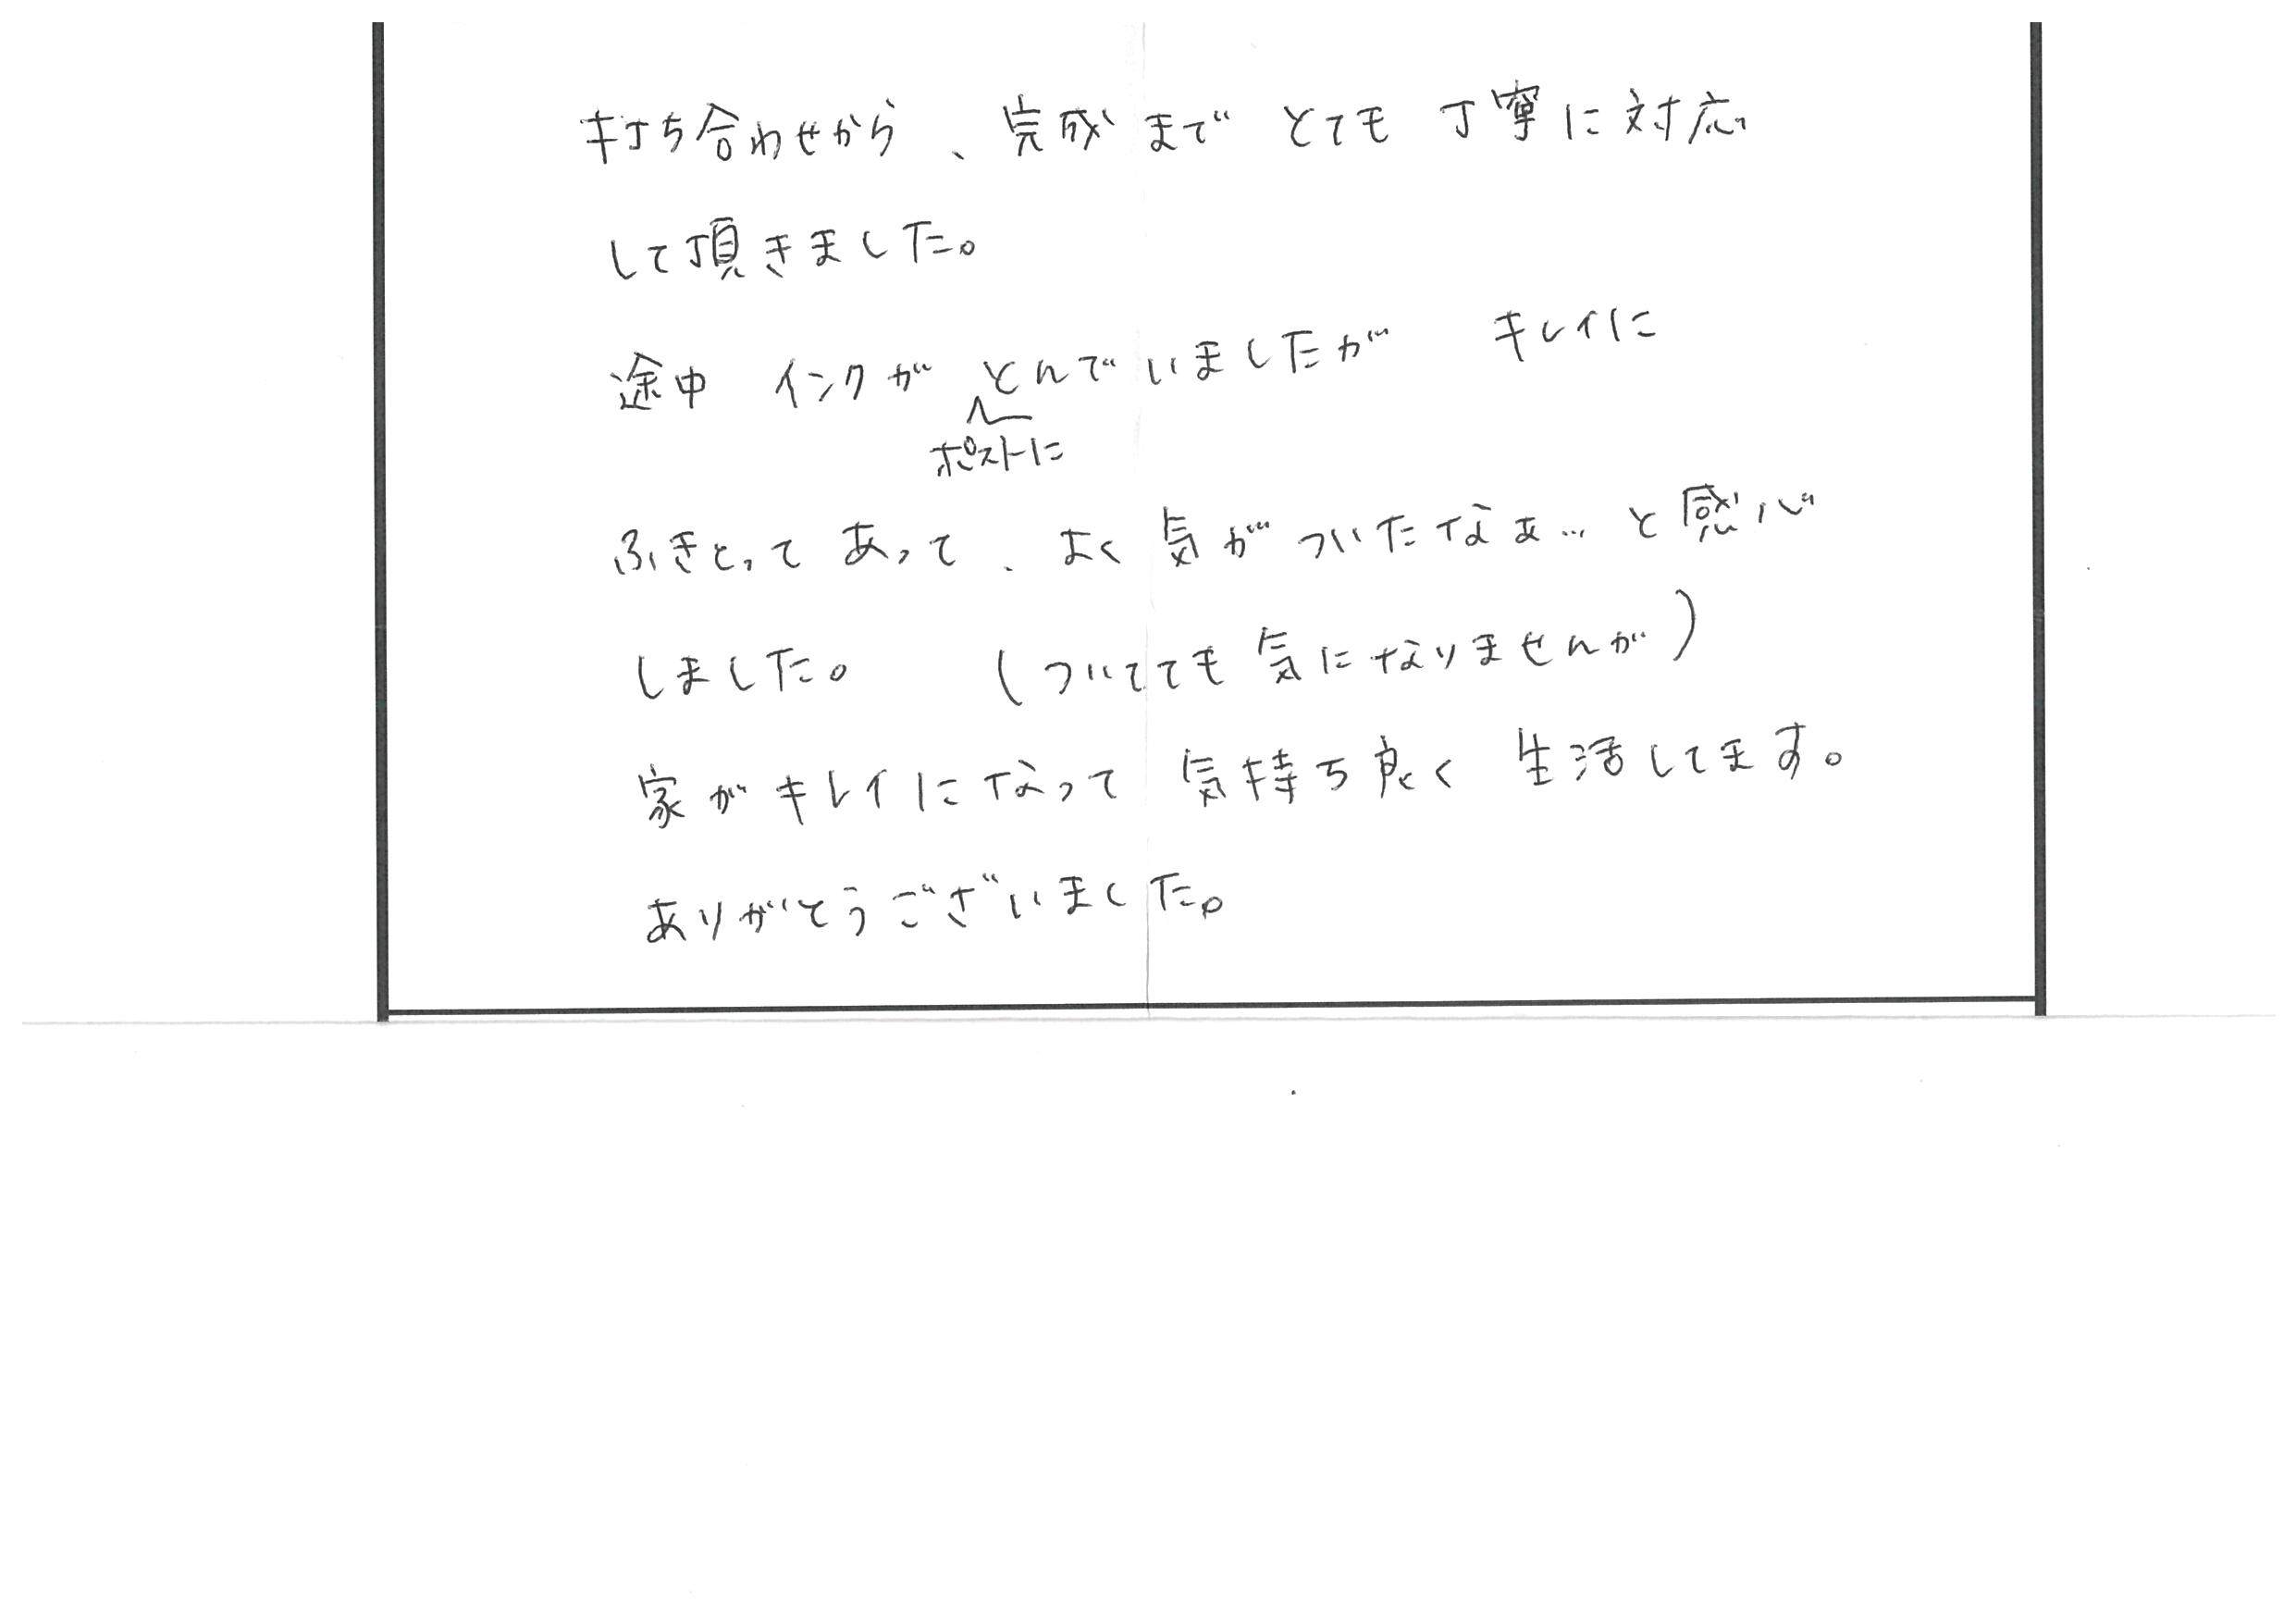 打ち合わせから、完成まで とても 丁寧に対応
して頂きました。
途中 インクが とんでいましたが キレイに
ポストに
ふきとって あって、よく 気がついたなぁ…と感心
しました。 (ついてても気になりませんが)
家がキレイになって 気持ち良く 生活してます。
ありがとうございました。